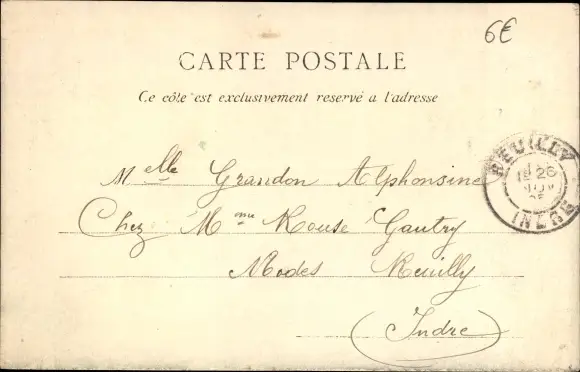 6€
CARTE POSTALE
Ce côté est exclusivement reservé a l'adresse
REUILLY
1E 26
INDRE
Melle Grandon Alphonsine
Chez Mme Rouse Gautry
Modes Reuilly
(Indre)